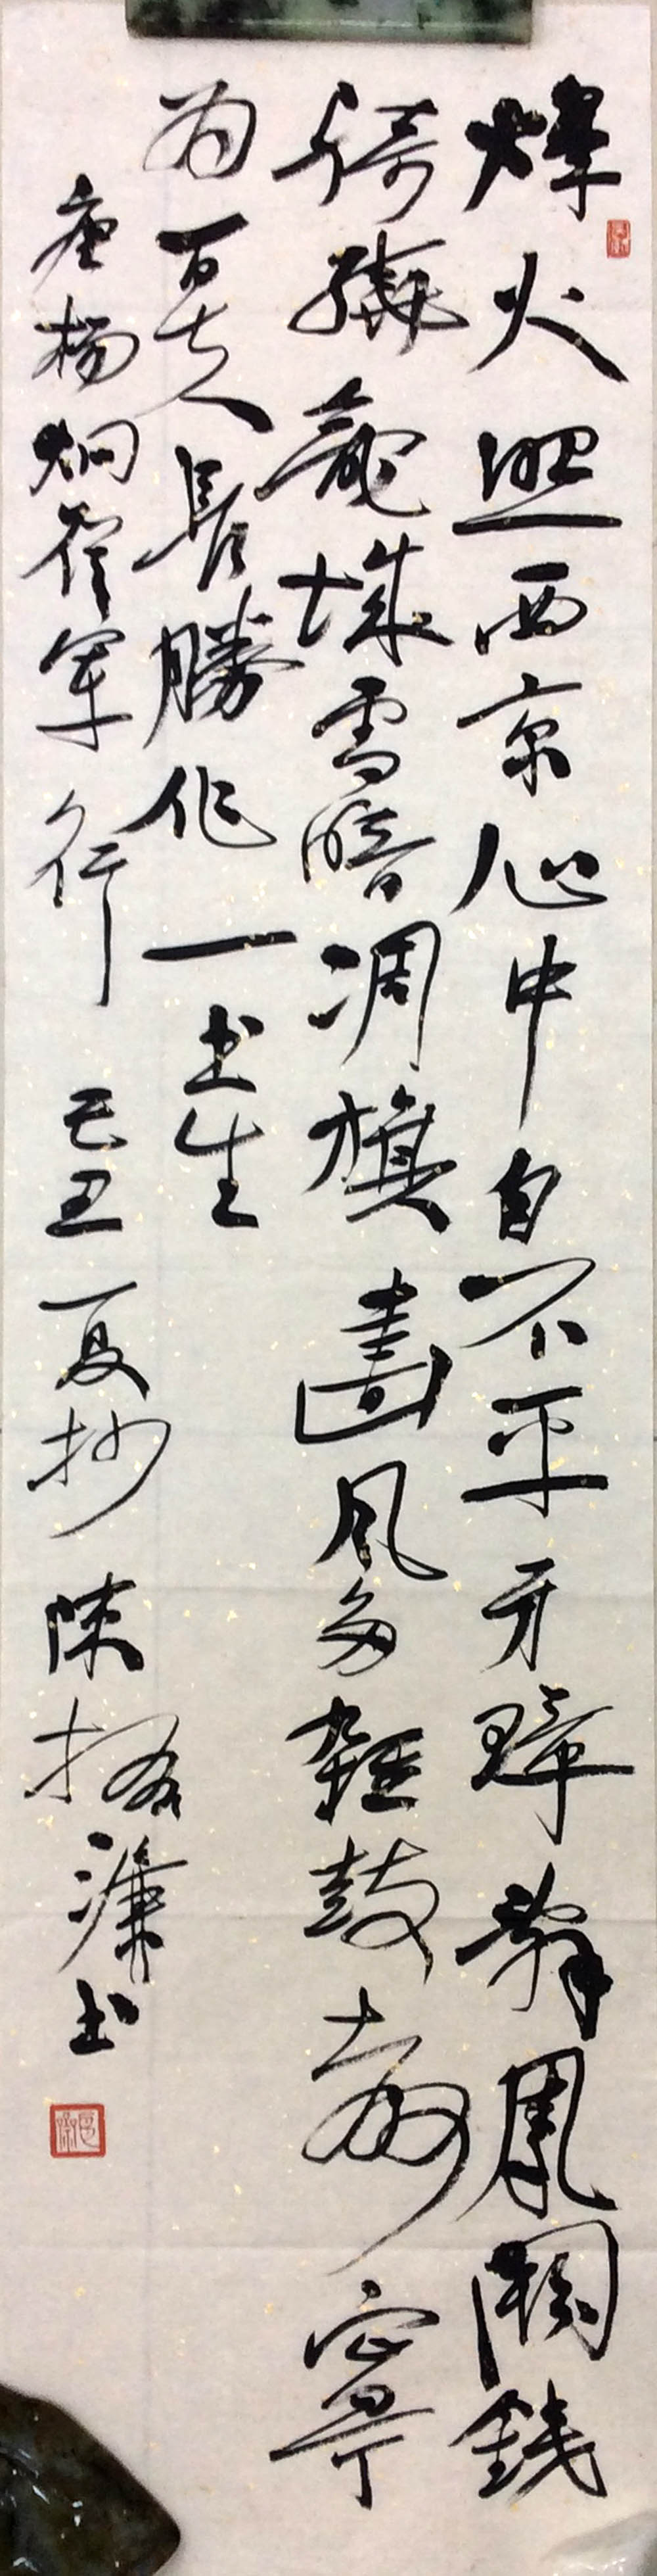 烽火照西京心中自不平牙璋辭鳳闕鐵
騎繞龍城雪暗凋旗畫風多雜鼓聲寧
為百夫長勝作一書生
唐楊炯從軍行 己丑夏杪 陳振濂書